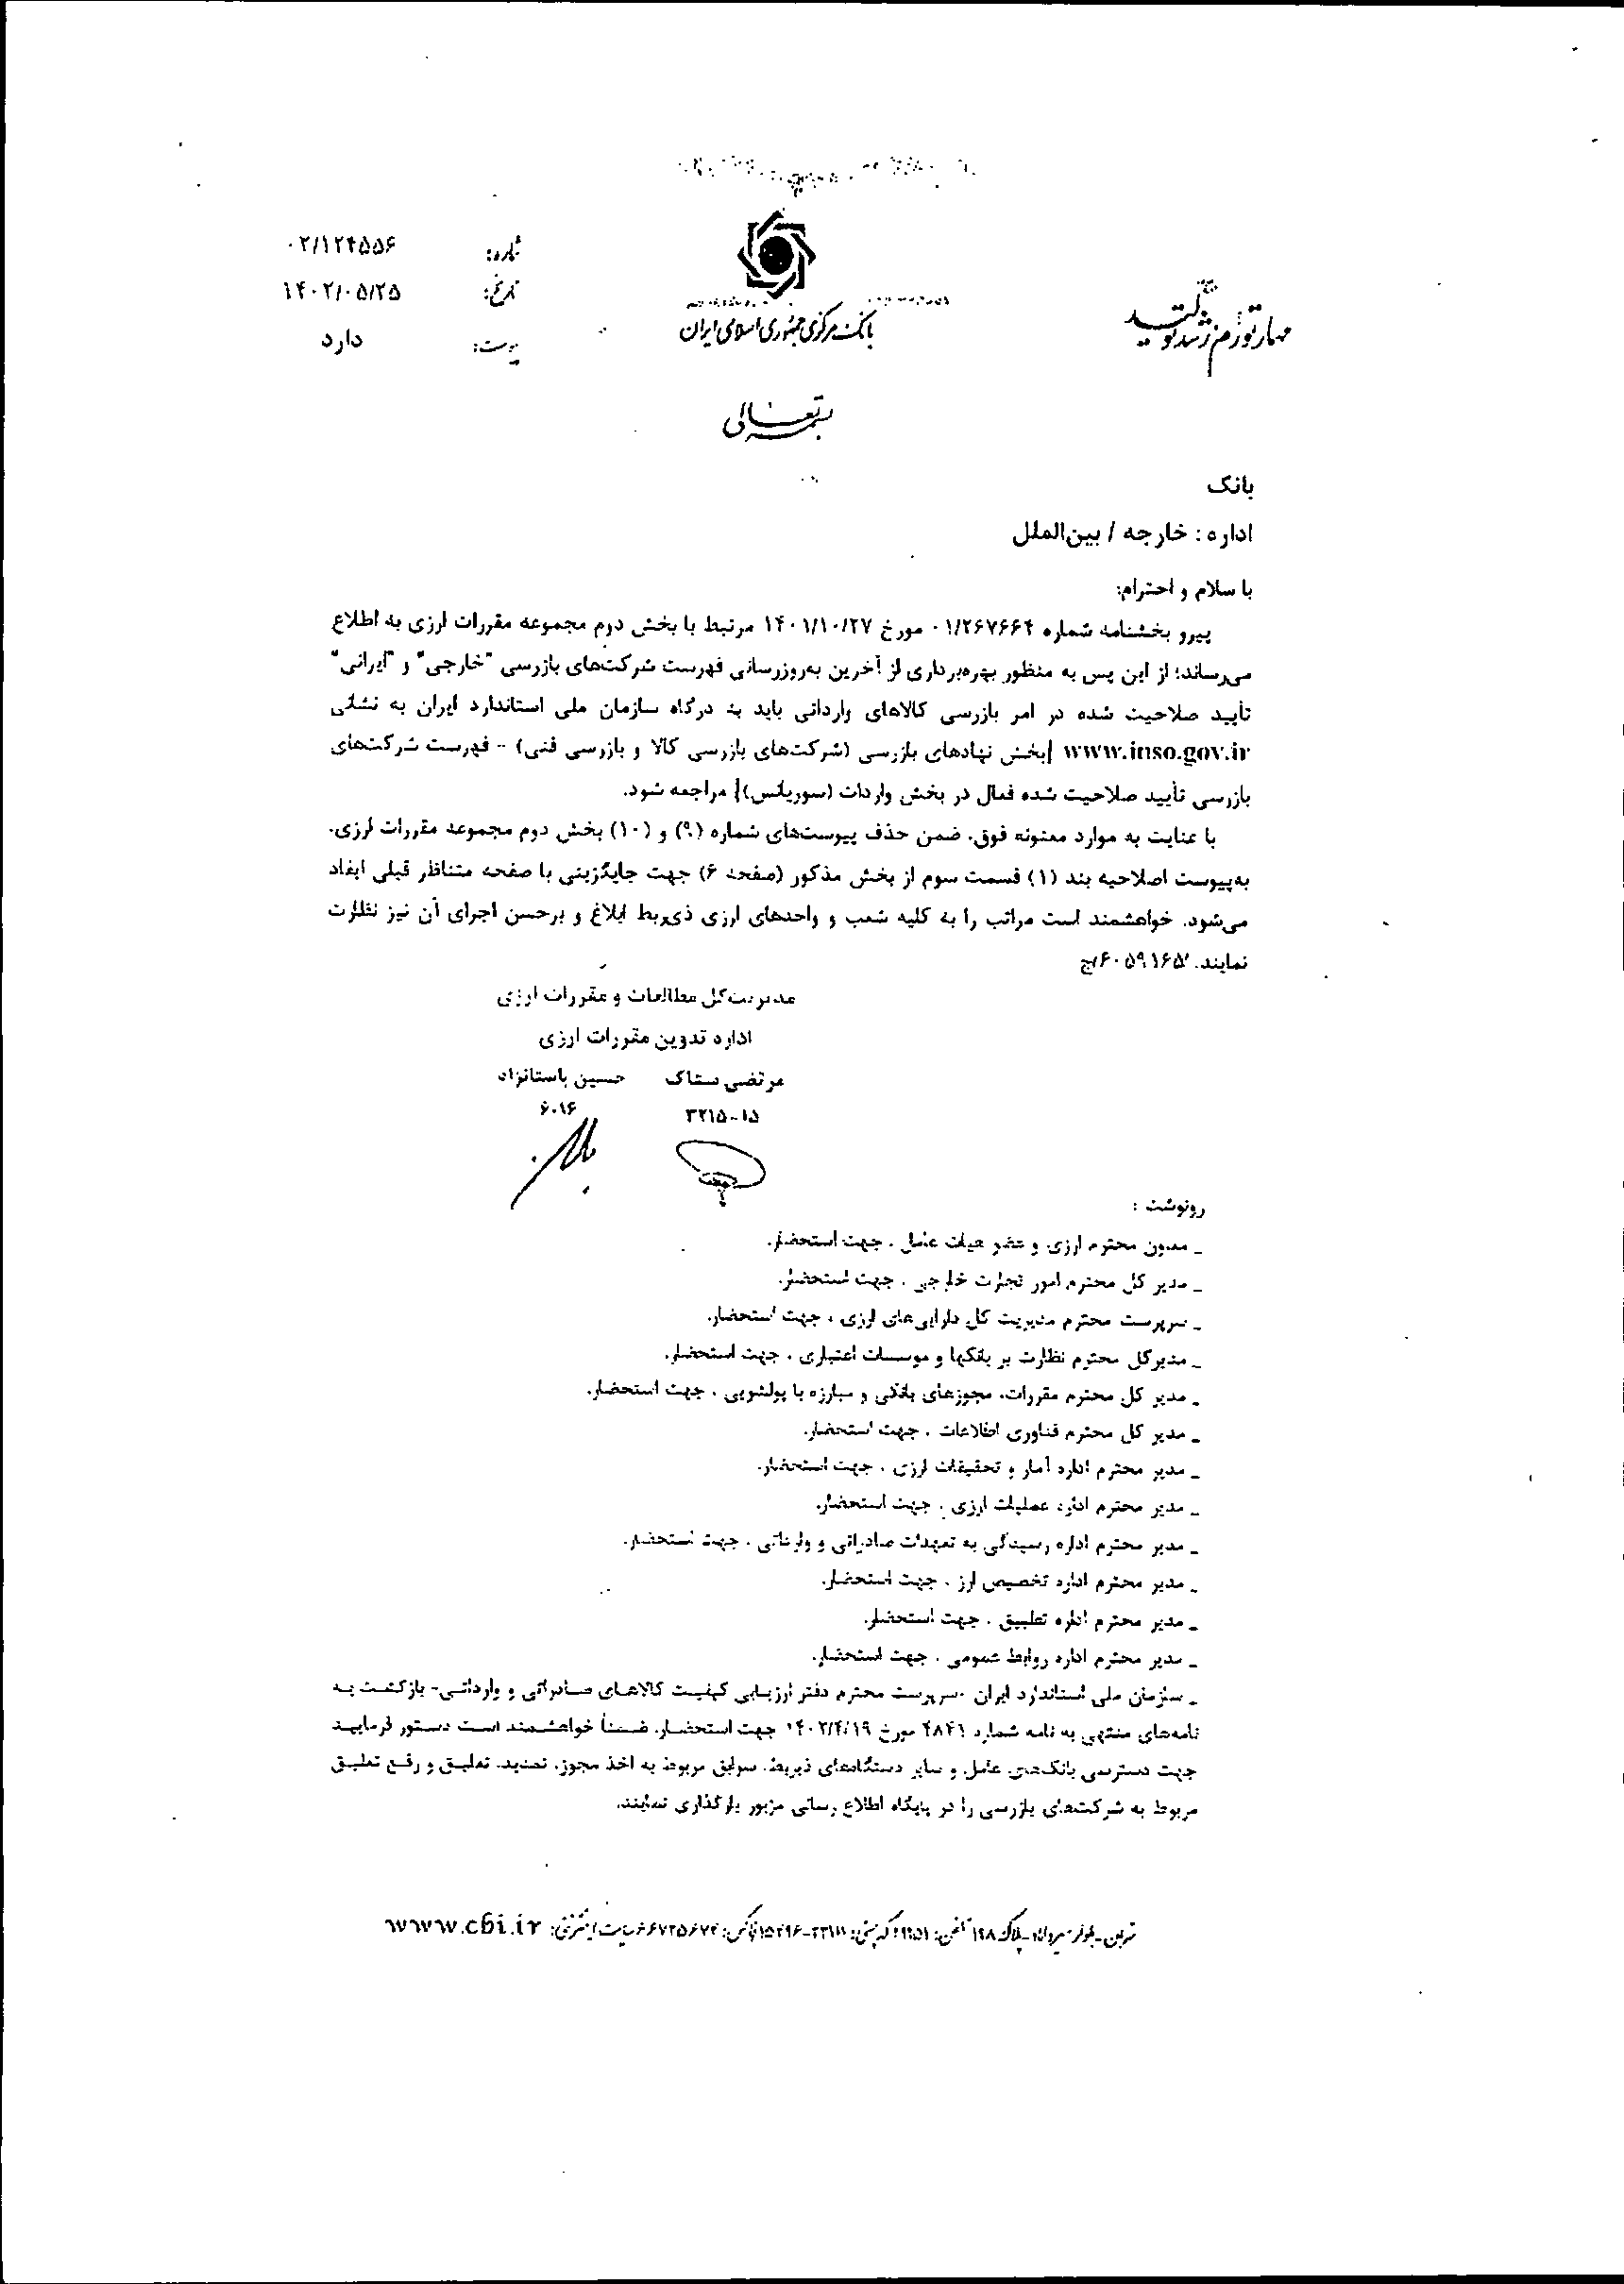 شماره: ۰۲/۱۲۴۵۵۶
تاریخ: ۱۴۰۲/۰۵/۲۵
پیوست: دارد
بانک مرکزی جمهوری اسلامی ایران
مهار تورم، رشد تولید
بسمه تعالی
بانک
اداره : خارجه / بین‌الملل
با سلام و احترام؛
پیرو بخشنامه شماره ۰۱/۲۶۷۶۶۴ مورخ ۱۴۰۱/۱۰/۲۷ مرتبط با بخش دوم مجموعه مقررات ارزی به اطلاع
می‌رساند؛ از این پس به منظور بهره‌برداری از آخرین به‌روزرسانی فهرست شرکت‌های بازرسی "خارجی" و "ایرانی"
تأیید صلاحیت شده در امر بازرسی کالاهای وارداتی باید به درگاه سازمان ملی استاندارد ایران به نشانی
www.inso.gov.ir [بخش نهادهای بازرسی (شرکت‌های بازرسی کالا و بازرسی فنی) - فهرست شرکت‌های
بازرسی تأیید صلاحیت شده فعال در بخش واردات (سوریانس)] مراجعه شود.
با عنایت به موارد معنونه فوق، ضمن حذف پیوست‌های شماره (۹) و (۱۰) بخش دوم مجموعه مقررات ارزی،
به‌پیوست اصلاحیه بند (۱) قسمت سوم از بخش مذکور (صفحه ۶) جهت جایگزینی با صفحه متناظر قبلی ایفاد
می‌شود. خواهشمند است مراتب را به کلیه شعب و واحدهای ارزی ذی‌ربط ابلاغ و برحسن اجرای آن نیز نظارت
نمایند. ۶۰۵۹۱۶۵/ج
مدیریت‌کل مطالعات و مقررات ارزی
اداره تدوین مقررات ارزی
مرتضی ستاک حسین باستانزاد
۳۲۱۵-۱۵ ۶۰۱۶
رونوشت :
_ معاون محترم ارزی و عضو هیات عامل ، جهت استحضار.
_ مدیر کل محترم امور تجارت خارجی ، جهت استحضار.
_ سرپرست محترم مدیریت کل دارایی‌های ارزی ، جهت استحضار.
_ مدیرکل محترم نظارت بر بانکها و موسسات اعتباری ، جهت استحضار.
_ مدیر کل محترم مقررات، مجوزهای بانکی و مبارزه با پولشویی ، جهت استحضار.
_ مدیر کل محترم فناوری اطلاعات ، جهت استحضار.
_ مدیر محترم اداره آمار و تحقیقات ارزی ، جهت استحضار.
_ مدیر محترم اداره عملیات ارزی ، جهت استحضار.
_ مدیر محترم اداره رسیدگی به تعهدات صادراتی و وارداتی ، جهت استحضار.
_ مدیر محترم اداره تخصیص ارز ، جهت استحضار.
_ مدیر محترم اداره تطبیق ، جهت استحضار.
_ مدیر محترم اداره روابط عمومی ، جهت استحضار.
_ سازمان ملی استاندارد ایران -سرپرست محترم دفتر ارزیابی کیفیت کالاهای صادراتی و وارداتی- بازگشت به
نامه‌های منتهی به نامه شماره ۴۸۴۱ مورخ ۱۴۰۲/۴/۱۹ جهت استحضار. ضمناً خواهشمند است دستور فرمایید
جهت دسترسی بانک‌های عامل و سایر دستگاه‌های ذیربط، سوابق مربوط به اخذ مجوز، تمدید، تعلیق و رفع تعلیق
مربوط به شرکت‌های بازرسی را در پایگاه اطلاع رسانی مزبور بارگذاری نمایند.
- بلوار میرداماد - پلاک ۱۹۸ تلفن: ۲۹۹۵۱ کد پستی: ۱۵۴۹۶-۳۳۱۱۱ فاکس: ۶۶۷۳۵۶۷۴ سایت اینترنتی: www.cbi.ir